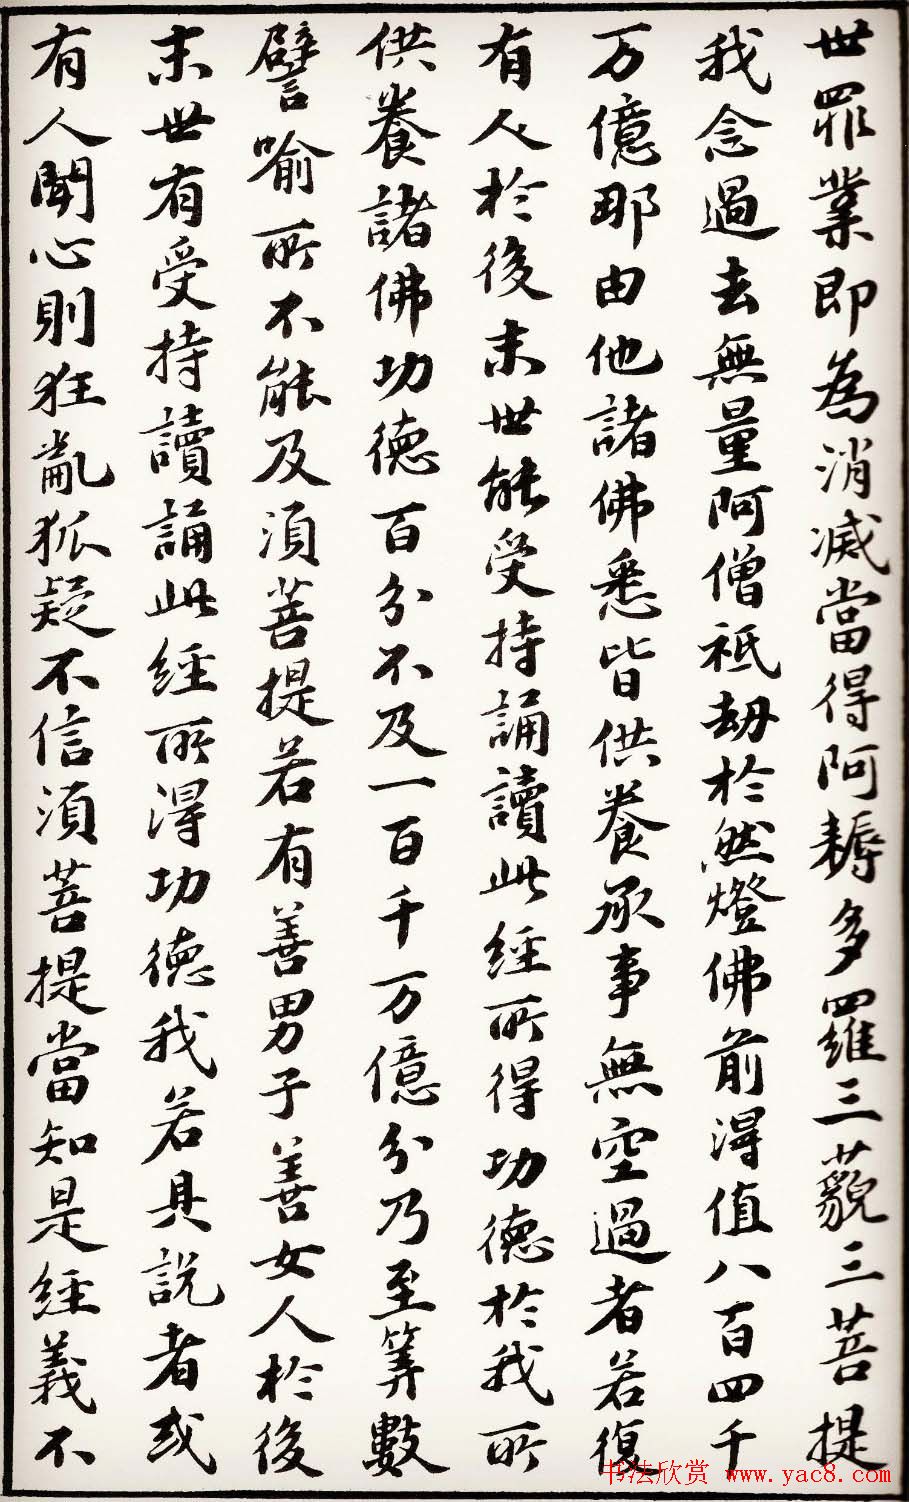 世罪業即為消滅當得阿耨多羅三藐三菩提
我念過去無量阿僧祇劫於然燈佛前得值八百四千
万億那由他諸佛悉皆供養承事無空過者若復
有人於後末世能受持誦讀此經所得功德於我所
供養諸佛功德百分不及一百千万億分乃至筭數
譬喻所不能及須菩提若有善男子善女人於後
末世有受持讀誦此經所得功德我若具說者或
有人聞心則狂亂狐疑不信須菩提當知是經義不
书法欣赏 www.yac8.com